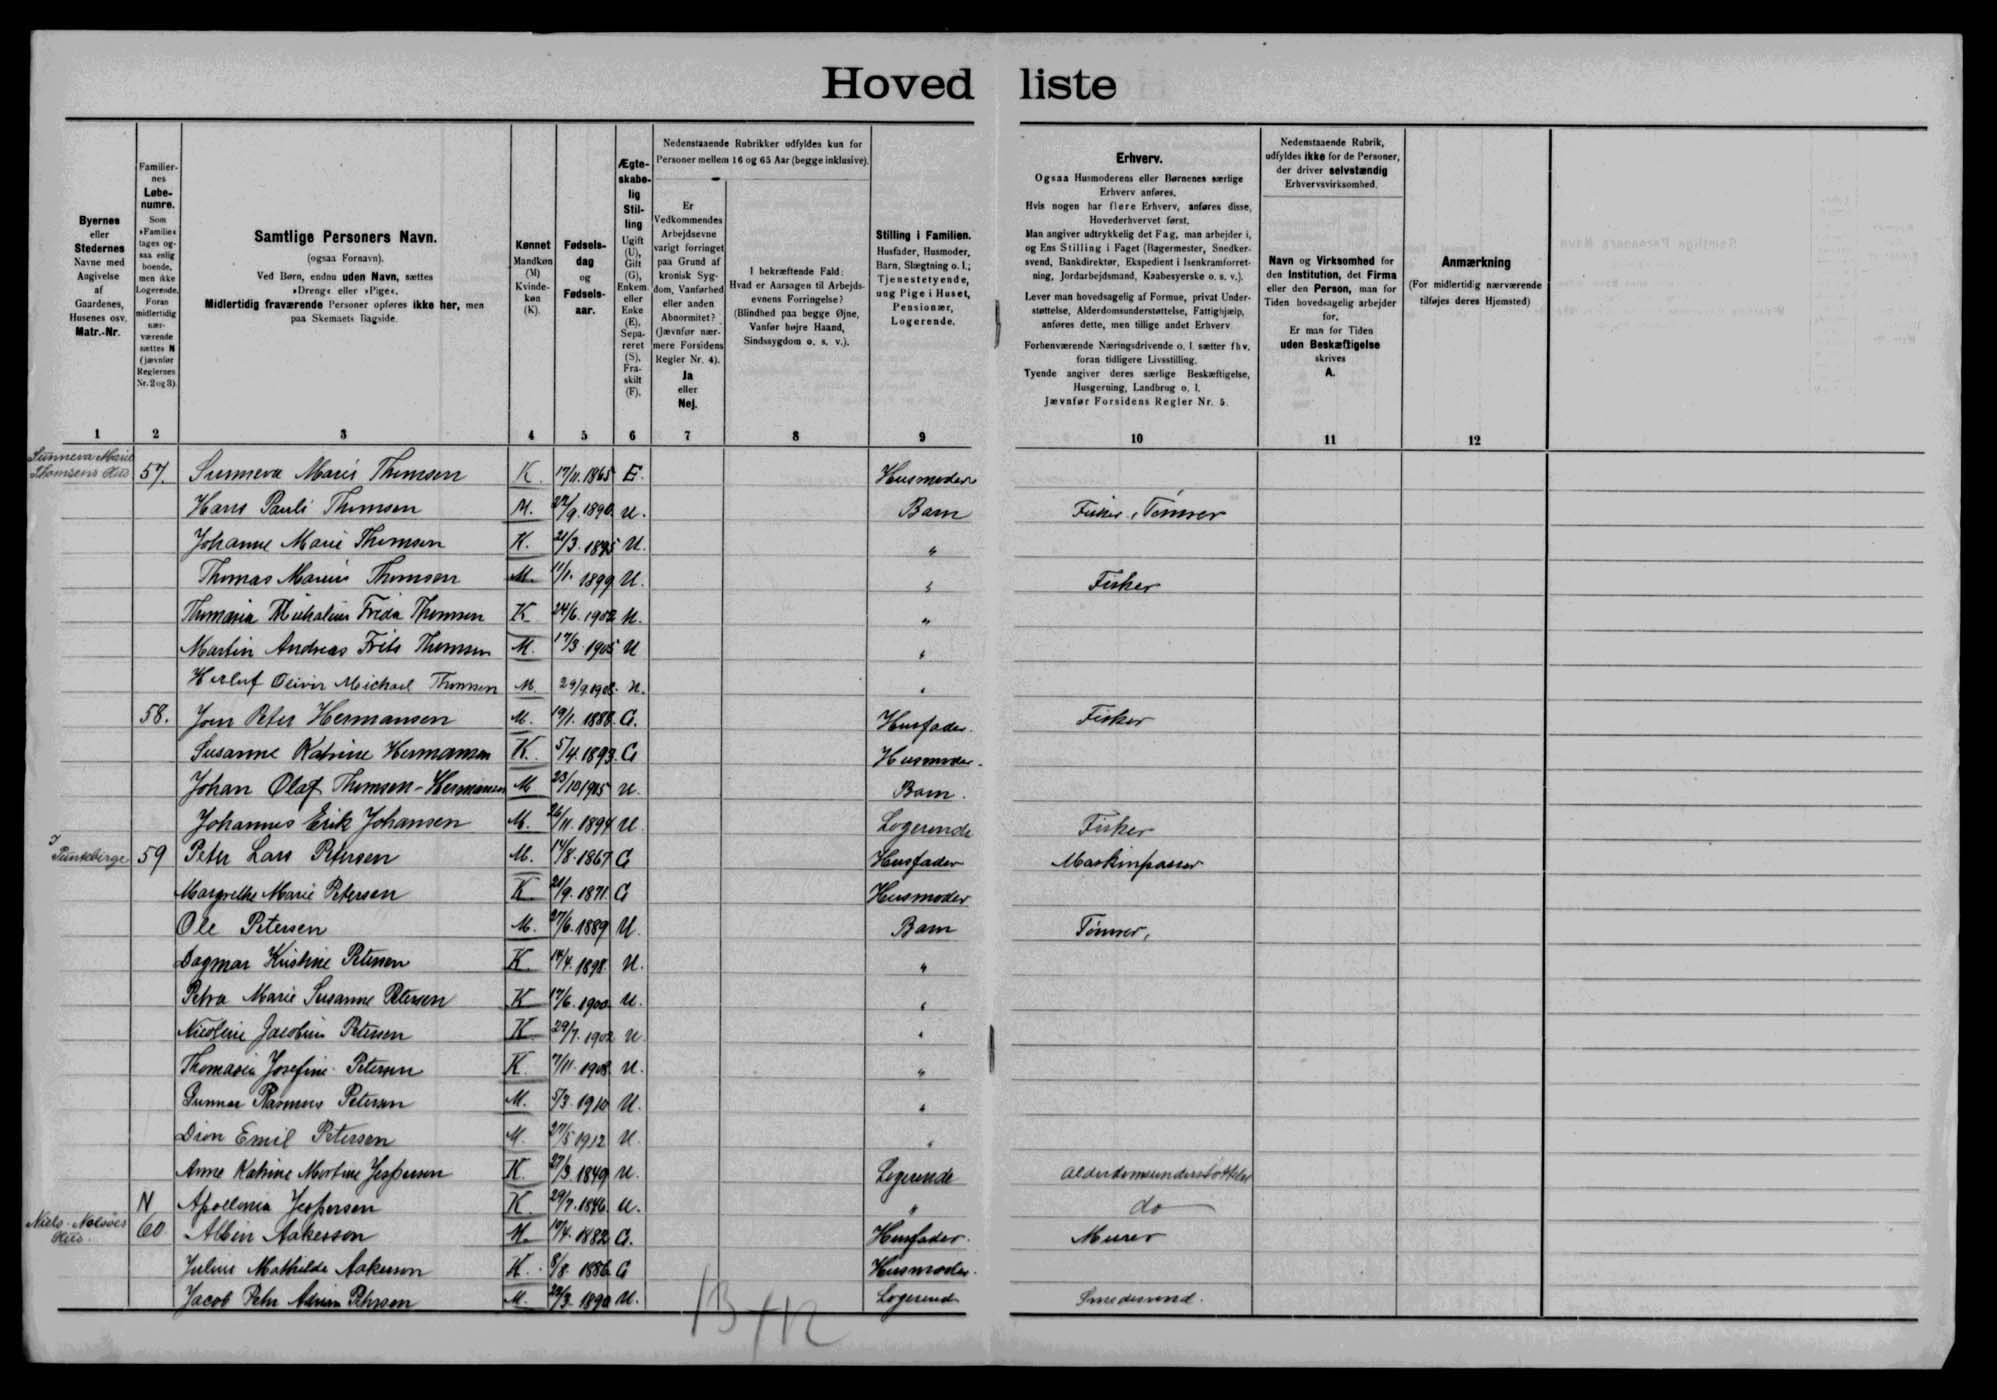 Hovedliste
Byernes eller Stedernes Navne med Angivelse af Gaardenes, Husenes osv. Matr.-Nr.
Familiernes Løbenumre. Som »Familie« tages ogsaa enlig boende, men ikke Logerende. Foran midlertidig nærværende sættes N (jævnfør Reglernes Nr. 2 og 3).
Samtlige Personers Navn. (ogsaa Fornavn). Ved Børn, endnu uden Navn, sættes »Dreng« eller »Pige«. Midlertidig fraværende Personer opføres ikke her, men paa Skemaets Bagside.
Kønnet Mandkøn (M) Kvindekøn (K).
Fødselsdag og Fødselsaar.
Ægteskabelig Stilling Ugift (U), Gift (G), Enkem. eller Enke (E), Separeret (S), Fraskilt (F).
Nedenstaaende Rubrikker udfyldes kun for Personer mellem 16 og 65 Aar (begge inklusive).
Er Vedkommendes Arbejdsevne varigt forringet paa Grund af kronisk Sygdom, Vanførhed eller anden Abnormitet? (Jævnfør nærmere Forsidens Regler Nr. 4). Ja eller Nej.
I bekræftende Fald: Hvad er Aarsagen til Arbejdsevnens Forringelse? (Blindhed paa begge Øjne, Vanfør højre Haand, Sindssygdom o. s. v.).
Stilling i Familien. Husfader, Husmoder, Barn, Slægtning o. l.; Tjenestetyende, ung Pige i Huset, Pensionær, Logerende.
Erhverv.
Ogsaa Husmoderens eller Børnenes særlige Erhverv anføres.
Hvis nogen har flere Erhverv, anføres disse, Hovederhvervet først.
Man angiver udtrykkelig det Fag, man arbejder i, og Ens Stilling i Faget (Bagermester, Snedkersvend, Bankdirektør, Ekspedient i Isenkramforretning, Jordarbejdsmand, Kaabesyerske o. s. v.).
Lever man hovedsagelig af Formue, privat Understøttelse, Alderdomsunderstøttelse, Fattighjælp, anføres dette, men tillige andet Erhverv.
Forhenværende Næringsdrivende o. l. sætter fhv. foran tidligere Livsstilling.
Tyende angiver deres særlige Beskæftigelse, Husgerning, Landbrug o. l.
Jævnfør Forsidens Regler Nr. 5.
Nedenstaaende Rubrik, udfyldes ikke for de Personer, der driver selvstændig Erhvervsvirksomhed.
Navn og Virksomhed for den Institution, det Firma eller den Person, man for Tiden hovedsagelig arbejder for.
Er man for Tiden uden Beskæftigelse skrives A.
Anmærkning (For midlertidig nærværende tilføjes deres Hjemsted)
1 2 3 4 5 6 7 8 9 10 11 12
Sunneva Marie Thomsens Hus 57. Sunneva Marie Thomsen K. 17/11.1865 E. Husmoder
Hans Pauli Thomsen M. 1890. U. Barn Fisker, Tømrer
Johanne Marie Thomsen K. 21/3. 1895 U. "
Thomas Marius Thomsen M. 11/1. 1899 U. " Fisker
Thomasia Frida Thomsen K 24/6. 1902 U. "
Martin Andreas Frits Thomsen M. 17/3. 1905 U "
Herluf Oliver Michael Thomsen M. 29/9.1908. U. "
58. Joen Peter Hermansen M. 19/1. 1888. G. Husfader. Fisker
Susanne Katrine Hermansen K. 5/4. 1893. G Husmoder.
Johan Olaf Thomsen-Hermansen M 23/10 1915 U. Barn.
Johannes Erik Johansen M. 26/11. 1894 U Logerende Fisker
59 Peter Lars Petersen M. 14/8. 1867 G Husfader Maskinpasser
Margrethe Marie Petersen K 21/9. 1871. G Husmoder
Ole Petersen M. 27/6. 1889 U. Barn Tømrer,
Dagmar Kristine Petersen K. 14/4. 1898. U. "
Petra Marie Susanne Petersen K 17/6. 1900 U. "
Nicoline Jacobine Petersen K. 29/7. 1902 U "
Thomasia Josefine Petersen K. 7/11. 1908. U. "
Gunnar Rasmus Petersen M. 5/3. 1910 U. "
Dion Emil Petersen M. 27/5 1912 U. "
Anne Katrine Martine Jespersen K. 27/3. 1849 U. Logerende Alderdomsunderstøttelse
N Apollonia Jespersen K. 29/7. 1846. U. " do
Niels Nolsøes Hus. 60 Albin Aakesson M. 1882 G. Husfader. Murer
Mathilde Aakesson K. 8/8. 1886 G Husmoder.
Jacob Petersen M. 1890 U. Logerend Smedesvend.
13+12